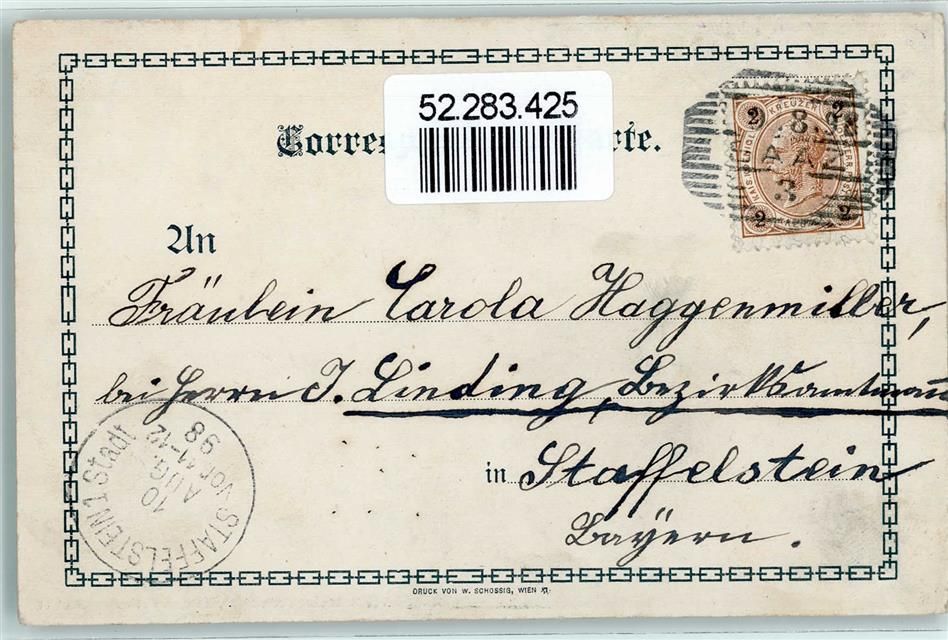 52.283.425
Corre arte.
2 KREUZER 2
8.
3
2 2
An
Fräulein Carola Haggenmiller,
bei Herrn J. Linding, Bezirksamtmann
in Staffelstein
Bayern.
STAFFELSTEIN 1 Stadt
10
AUG.
Vor. 11-12
98
DRUCK VON W. SCHOSSIG, WIEN